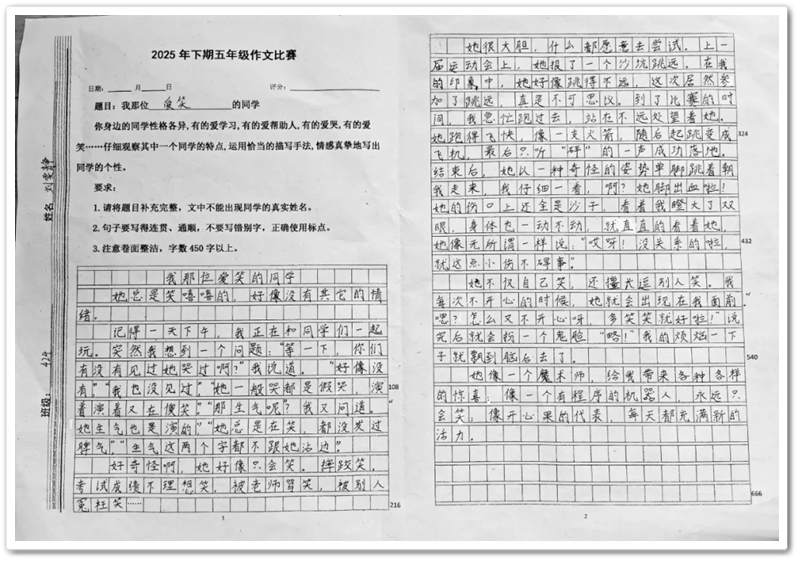 2025 年下期五年级作文比赛
日期：____月____日 评分：____
题目：我那位 爱笑 的同学
你身边的同学性格各异，有的爱学习，有的爱帮助人，有的爱哭，有的爱
笑……仔细观察其中一个同学的特点，运用恰当的描写手法，情感真挚地写出
同学的个性。
要求：
1. 请将题目补充完整，文中不能出现同学的真实姓名。
2. 句子要写得连贯、通顺，不要写错别字，正确使用标点。
3. 注意卷面整洁，字数 450 字以上。
姓名：刘雯静
班级：
我那位爱笑的同学
她总是笑嘻嘻的，好像没有其它的情
绪。
记得一天下午，我正在和同学们一起
玩。突然我想到一个问题："等一下，你们
有没有见过她哭过啊？"我说道。"好像没
有""我也没见过""她一般哭都是假哭，演
着演着又在傻笑""那生气呢？"我又问道。
"她生气也是演的""她总是在笑，都没发过
脾气""生气这两个字都不跟她沾边"
好奇怪啊，她好像只会笑。摔跤笑，
考试成绩不理想笑，被老师骂笑，被别人
冤枉笑……
108
216
1
她很大胆，什么都愿意去尝试。上一
届运动会上，她报了一个沙坑跳远，在我
的印象中，她好像跳得不远，这次居然参
加了跳远，真是不可思议。到了比赛的时
间，我急忙跑过去，站在不远处望着她。
她跑得飞快，像一支火箭，随后起跳变成
飞机，最后只听"砰"的一声成功落地。
结束后，她以一种奇怪的姿势单脚跳着朝
我走来，我仔细一看，啊？她脚出血啦！
她的伤口上还全是沙子，看着我瞪大了双
眼，身体也一动不动，就直直的看着她。
她像无所谓一样说："哎呀！没关系的啦，
就这点小伤不碍事"
她不仅自己笑，还擅长逗别人笑。我
每次不开心的时候，她就会出现在我面前。
"嗯？怎么又不开心呀，多笑笑就好啦！"说
完后就会扮一个鬼脸"略！"我的烦恼一下
子就飘到脑后去了。
她像一个魔术师，给我带来各种各样
的惊喜；像一个有程序的机器人，永远只
会笑，像开心果的代表，每天都充满新的
活力。
324
432
540
666
2